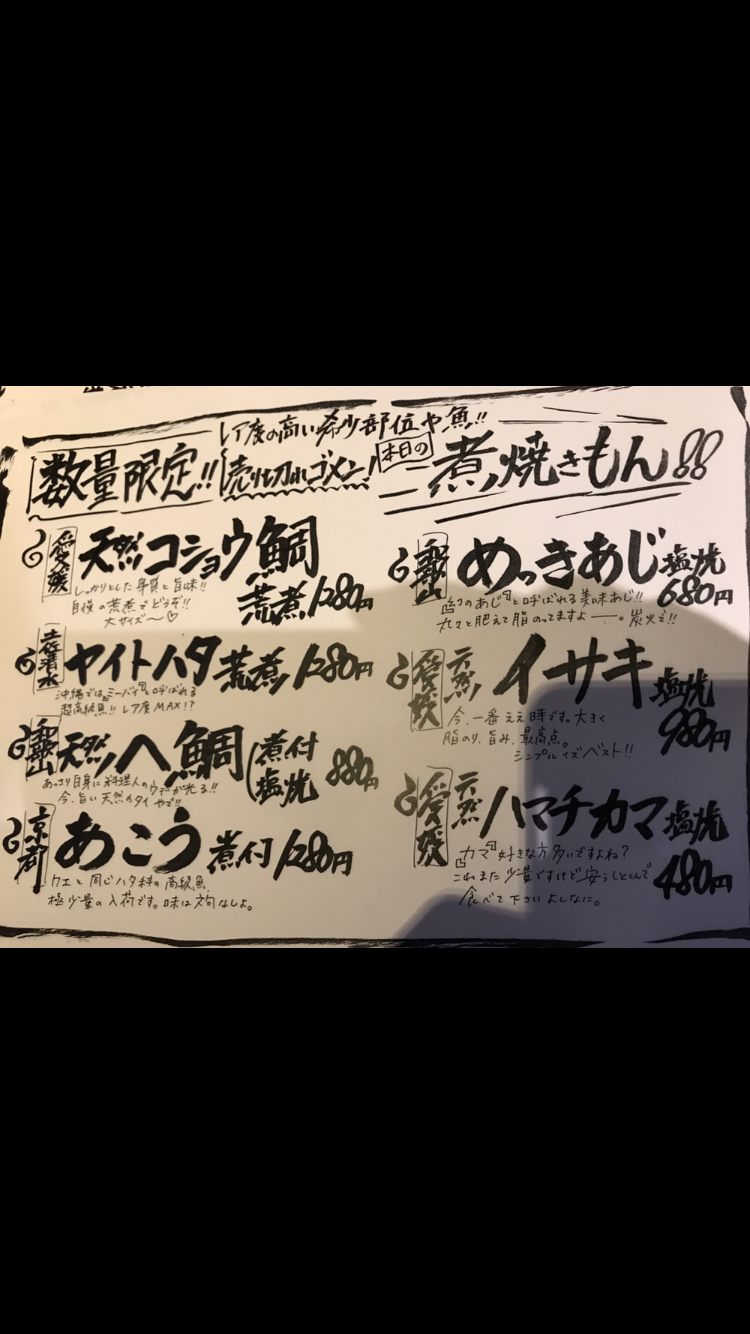 レア度の高い希少部位や魚!!
数量限定!! 売り切れゴメン! 本日の 煮焼きもん!!
愛媛 天然コショウ鯛
しっかりとした身質と旨味!!
自慢の荒煮でどうぞ!!
大サイズ〜♡
荒煮 1280円
土佐清水 ヤイトハタ 荒煮 1280円
沖縄では"ミーバイ"と呼ばれる
超高級魚!! レア度MAX!?
和歌山 天然ヘ鯛 煮付 塩焼 880円
あっさり白身に料理人のウデが光る!!
今、旨い天然のタイやで!!
京都 あこう 煮付 1280円
クエと同じハタ科の高級魚
極少量の入荷です。味は文句なしよ。
和歌山 めっきあじ 塩焼 680円
のあじ"と呼ばれる美味あじ!!
丸々と肥えて脂のってますよ——。炭火で!!
愛媛 天然 イサキ 塩焼 980円
今、一番ええ時です。大きく
脂のり、旨み、最高点。
シンプルイズベスト!!
愛媛 天然 ハマチカマ 塩焼 480円
「カマ」好きな方多いですよね?
これまた少量ですけど安うしとくんで
食べて下さいよしなに。